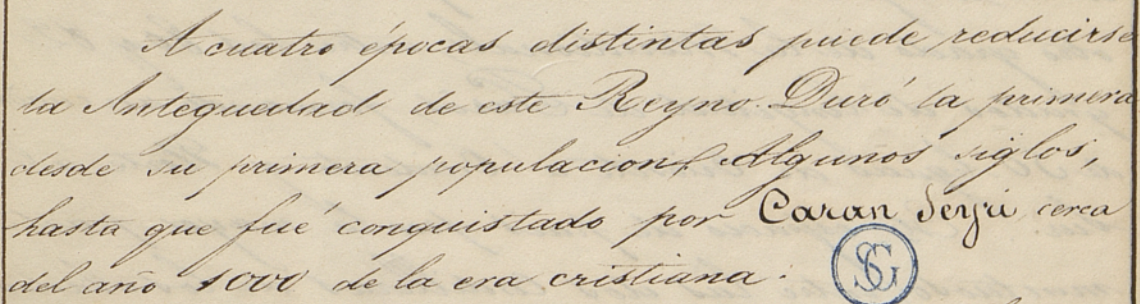 A cuatro épocas distintas puede reducirse
la Anteguedad de este Reyno. Duró la primera
desde su primera populacion, Algunos siglos,
hasta que fué conquistado por Caran Seyri cerca
del año 1000 de la era cristiana.
SG